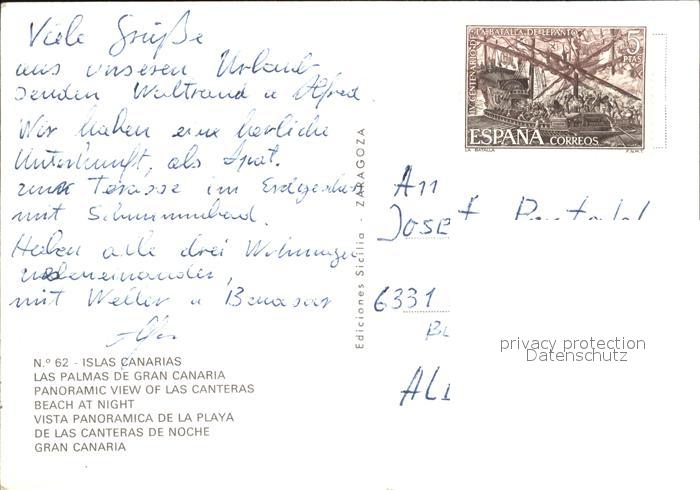 Viele Grüße
aus unseren Urlaub
senden Waltraud u Alfred
Wir haben eine herrliche
Unterkunft, als Apat.
zum Terasse im Erdgeschoß
mit Schwimmbad.
Haben alle drei Wohnungen
nebeneinander,
mit Weller u
N.º 62 - ISLAS CANARIAS
LAS PALMAS DE GRAN CANARIA
PANORAMIC VIEW OF LAS CANTERAS
BEACH AT NIGHT
VISTA PANORAMICA DE LA PLAYA
DE LAS CANTERAS DE NOCHE
GRAN CANARIA
Ediciones Sicilia - ZARAGOZA
IV CENTENARIO DE LA BATALLA DE LEPANTO
5 PTAS
ESPAÑA CORREOS
LA BATALLA F.N.M.T.
An
Josef
6331
privacy protection
Datenschutz